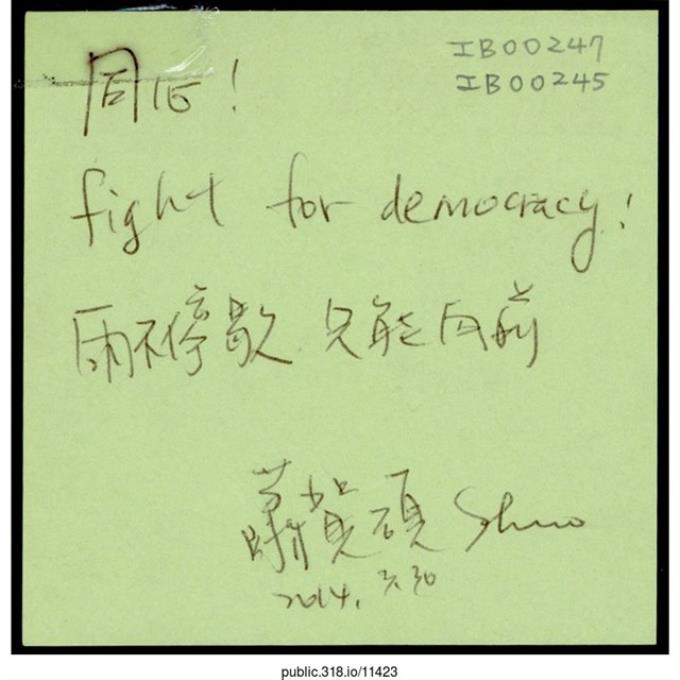 IB00247
IB00245
同伍!
fight for democracy!
雨不停歇 只能向前
蕭貫碩 Shuo
2014. 3.30
public.318.io/11423